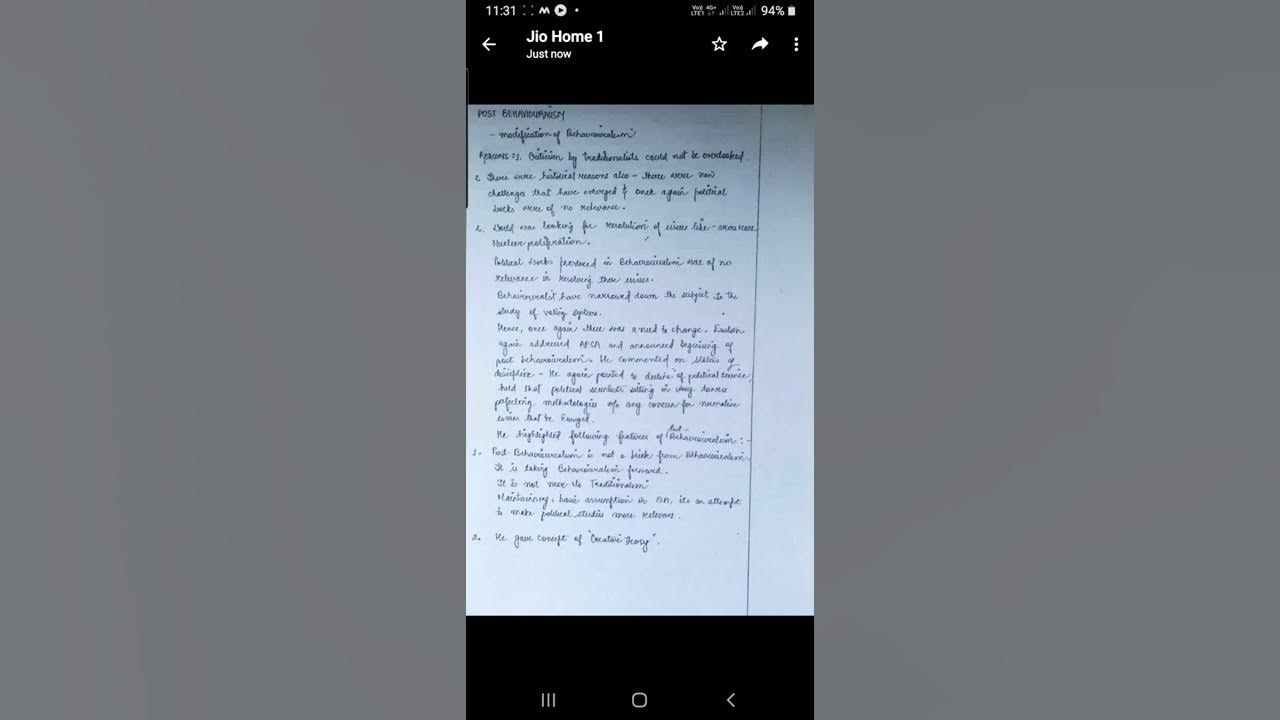 11:31
Voo) 4G+ LTE1 Voo) LTE2 94%
Jio Home 1
Just now
POST BEHAVIOURALISM
- modification of Behaviouralism
REASONS : 1. Criticism by traditionalists could not be overlooked.
2. There were historical reasons also - there were new
challenges that have emerged & once again political
works were of no relevance.
2. World was looking for resolution of issues like - arms race,
Nuclear proliferation.
Political works produced in Behaviouralism was of no
relevance in resolving those issues.
Behaviouralist have narrowed down the subject to the
study of voting system.
Hence, once again there was a need to change. Easton
again addressed APSA and announced beginning of
post behaviouralism. He commented on status of
discipline - He again pointed to decline of political science,
held that political scientists sitting in ivory towers
perfecting methodologies w/o any concern for normative
issues that've Emerged.
He highlighted following features of Post - Behaviouralism : -
1. Post-Behaviouralism is not a break from Behaviouralism.
It is taking Behaviouralism forward.
It is not near to Traditionalism
Maintaining basic assumption in BA, its an attempt
to make political studies more relevant.
2. He gave concept of "Creative Theory".